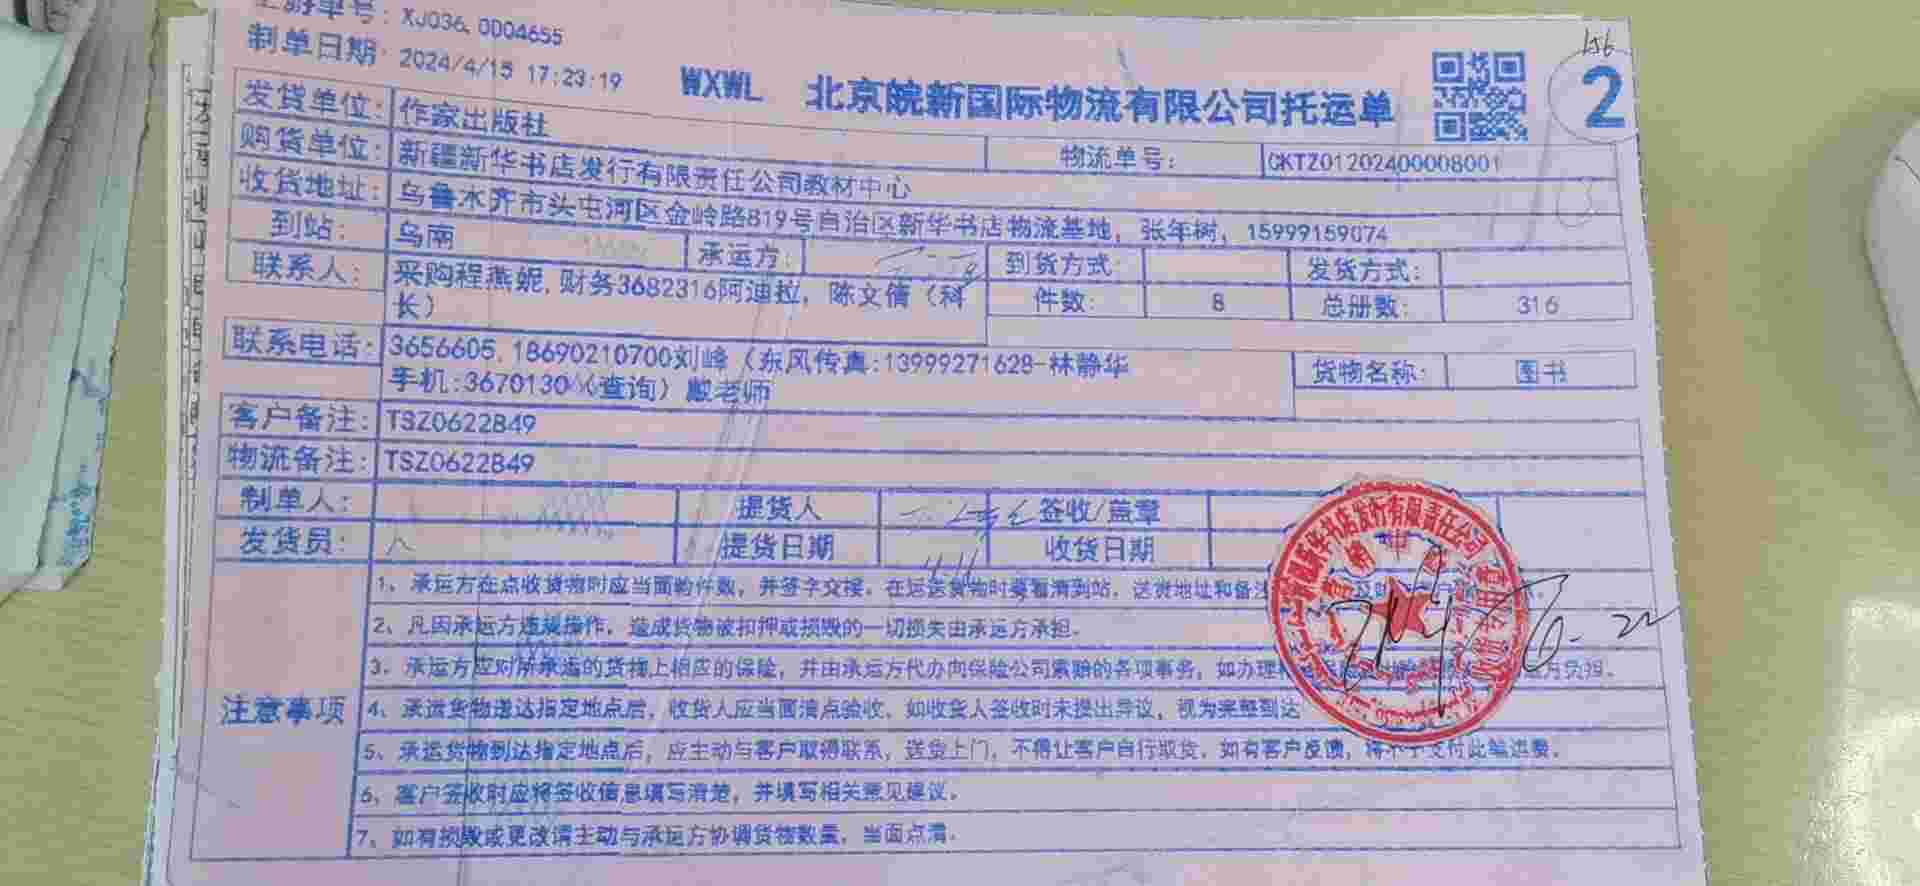 单号: XJ036, 0004655
156
制单日期: 2024/4/15 17:23:19
WXWL 北京皖新国际物流有限公司托运单
2
发货单位: 作家出版社
物流单号: CKTZ01202400008001
购货单位: 新疆新华书店发行有限责任公司教材中心
收货地址: 乌鲁木齐市头屯河区金岭路819号自治区新华书店物流基地, 张年树, 15999159074
到站: 乌南 承运方: 到货方式: 发货方式:
联系人: 采购程燕妮, 财务3682316阿迪拉, 陈文倩（科
长） 件数: 8 总册数: 316
联系电话: 3656605, 18690210700刘峰（东风传真:13999271628-林静华
手机:3670130（查询）戴老师
货物名称: 图书
客户备注: TSZ0622849
物流备注: TSZ0622849
制单人: 提货人 签收/盖章
发货员: 提货日期 收货日期
注意事项
1、承运方在点收货物时应当面验件数, 并签字交接, 在运送货物时要看清到站, 送货地址和备
2、凡因承运方违规操作, 造成货物被扣押或损毁的一切损失由承运方承担.
3、承运方应对所承运的货物上相应的保险, 并由承运方代办向保险公司索赔的各项事务, 如办理 方负担.
4、承运货物送达指定地点后, 收货人应当面清点验收, 如收货人签收时未提出异议, 视为完整到达
5、承运货物到达指定地点后, 应主动与客户取得联系, 送货上门, 不得让客户自行取货, 如有客户反馈, 将不予支付此笔运费.
6、客户签收时应将签收信息填写清楚, 并填写相关意见建议.
7、如有损毁或更改请主动与承运方协调货物数量, 当面点清.
新疆新华书店发行有限责任公司